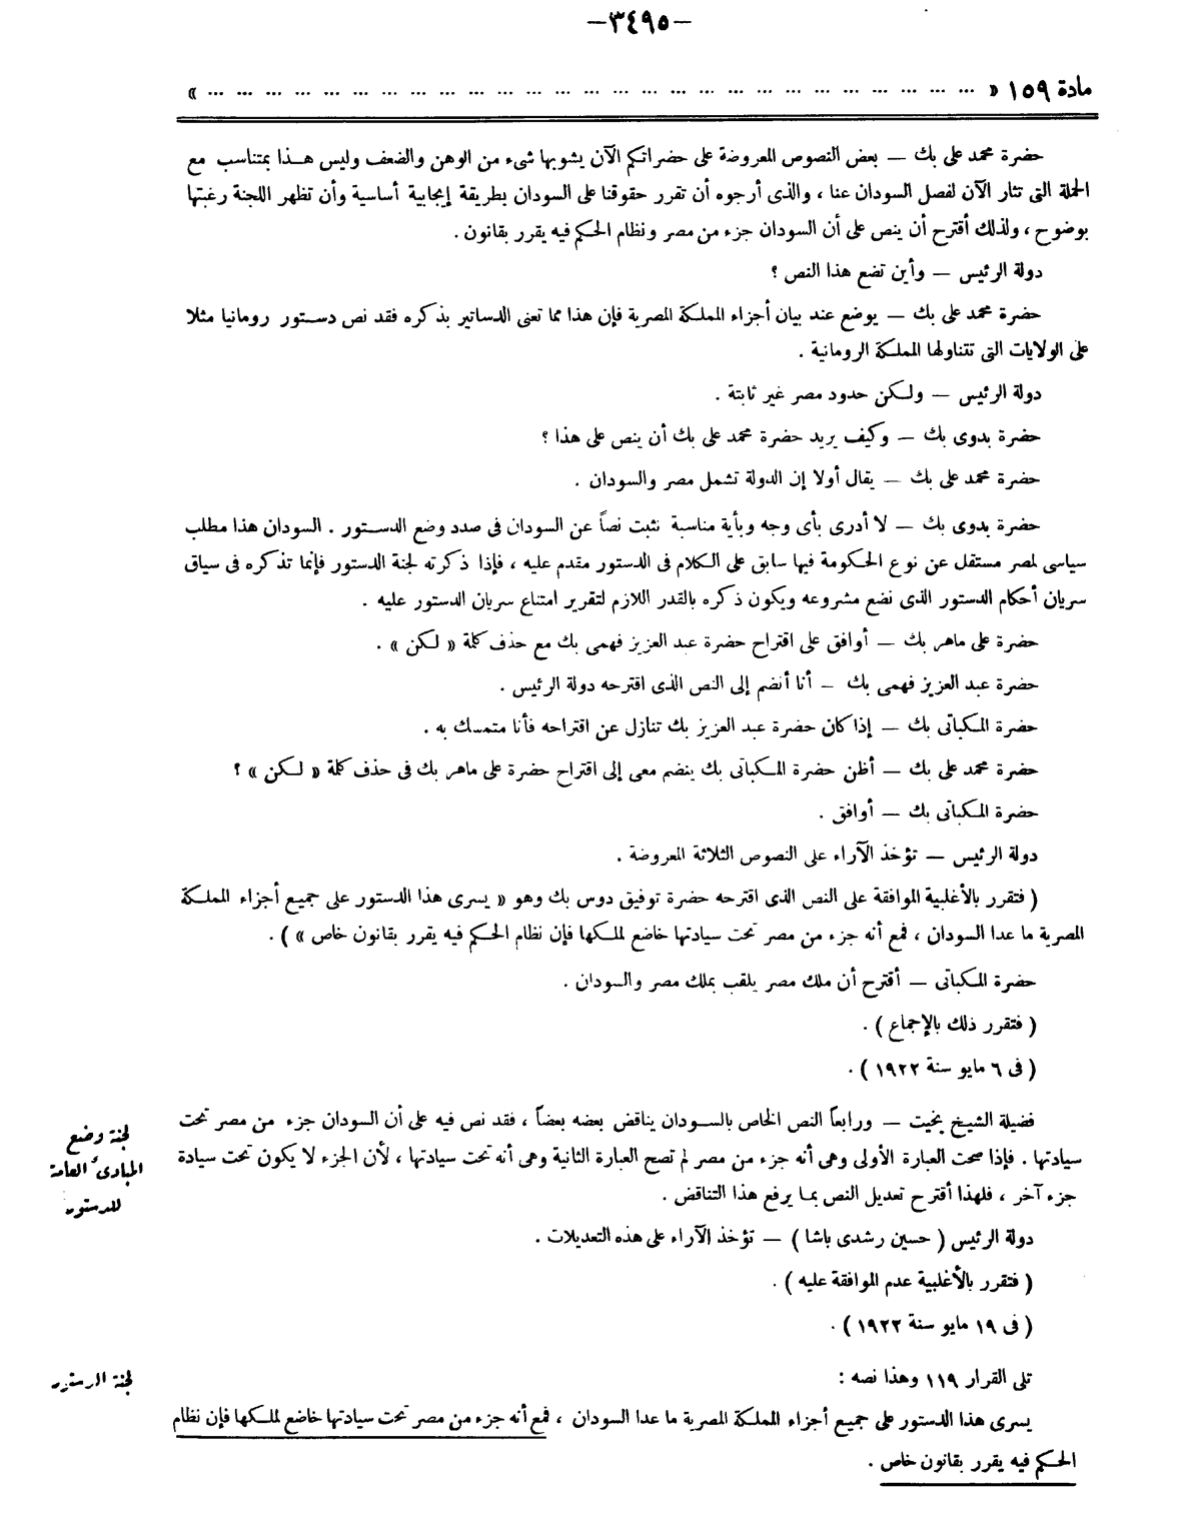 —٣٤٩٥—
مادة ١٥٩ « ... ... ... ... ... ... ... ... ... ... ... ... ... ... ... ... ... ... ... ... ... ... ... ... ... ... ... »
حضرة محمد على بك — بعض النصوص المعروضة على حضراتكم الآن يشوبها شىء من الوهن والضعف وليس هذا بمتناسب مع
الحملة التى تثار الآن لفصل السودان عنا ، والذى أرجوه أن تقرر حقوقنا على السودان بطريقة إيجابية أساسية وأن تظهر اللجنة رغبتها
بوضوح ، ولذلك أقترح أن ينص على أن السودان جزء من مصر ونظام الحكم فيه يقرر بقانون .
دولة الرئيس — وأين تضع هذا النص ؟
حضرة محمد على بك — يوضع عند بيان أجزاء المملكة المصرية فإن هذا مما تعنى الدساتير بذكره فقد نص دستور رومانيا مثلا
على الولايات التى تتناولها المملكة الرومانية .
دولة الرئيس — ولكن حدود مصر غير ثابتة .
حضرة بدوى بك — وكيف يريد حضرة محمد على بك أن ينص على هذا ؟
حضرة محمد على بك — يقال أولا إن الدولة تشمل مصر والسودان .
حضرة بدوى بك — لا أدرى بأى وجه وبأية مناسبة نثبت نصاً عن السودان فى صدد وضع الدستور . السودان هذا مطلب
سياسى لمصر مستقل عن نوع الحكومة فيها سابق على الكلام فى الدستور مقدم عليه ، فإذا ذكرته لجنة الدستور فإنما تذكره فى سياق
سريان أحكام الدستور الذى نضع مشروعه ويكون ذكره بالقدر اللازم لتقرير امتناع سريان الدستور عليه .
حضرة على ماهر بك — أوافق على اقتراح حضرة عبد العزيز فهمى بك مع حذف كلمة « لكن » .
حضرة عبد العزيز فهمى بك — أنا أنضم إلى النص الذى اقترحه دولة الرئيس .
حضرة المكباتى بك — إذا كان حضرة عبد العزيز بك تنازل عن اقتراحه فأنا متمسك به .
حضرة محمد على بك — أظن حضرة المكباتى بك ينضم معى إلى اقتراح حضرة على ماهر بك فى حذف كلمة « لكن » ؟
حضرة المكباتى بك — أوافق .
دولة الرئيس — تؤخذ الآراء على النصوص الثلاثة المعروضة .
( فتقرر بالأغلبية الموافقة على النص الذى اقترحه حضرة توفيق دوس بك وهو « يسرى هذا الدستور على جميع أجزاء المملكة
المصرية ما عدا السودان ، فمع أنه جزء من مصر تحت سيادتها خاضع لملكها فإن نظام الحكم فيه يقرر بقانون خاص » ) .
حضرة المكباتى — أقترح أن ملك مصر يلقب بملك مصر والسودان .
( فتقرر ذلك بالإجماع ) .
( فى ٦ مايو سنة ١٩٢٢ ) .
فضيلة الشيخ بخيت — ورابعاً النص الخاص بالسودان يناقض بعضه بعضاً ، فقد نص فيه على أن السودان جزء من مصر تحت
سيادتها . فإذا صحت العبارة الأولى وهى أنه جزء من مصر لم تصح العبارة الثانية وهى أنه تحت سيادتها ، لأن الجزء لا يكون تحت سيادة
جزء آخر ، فلهذا أقترح تعديل النص بما يرفع هذا التناقض .
لجنة وضع
المبادئ العامة
للدستور
دولة الرئيس ( حسين رشدى باشا ) — تؤخذ الآراء على هذه التعديلات .
( فتقرر بالأغلبية عدم الموافقة عليه ) .
( فى ١٩ مايو سنة ١٩٢٢ ) .
لجنة الدستور
تلى القرار ١١٩ وهذا نصه :
يسرى هذا الدستور على جميع أجزاء المملكة المصرية ما عدا السودان ، فمع أنه جزء من مصر تحت سيادتها خاضع لملكها فإن نظام
الحكم فيه يقرر بقانون خاص .